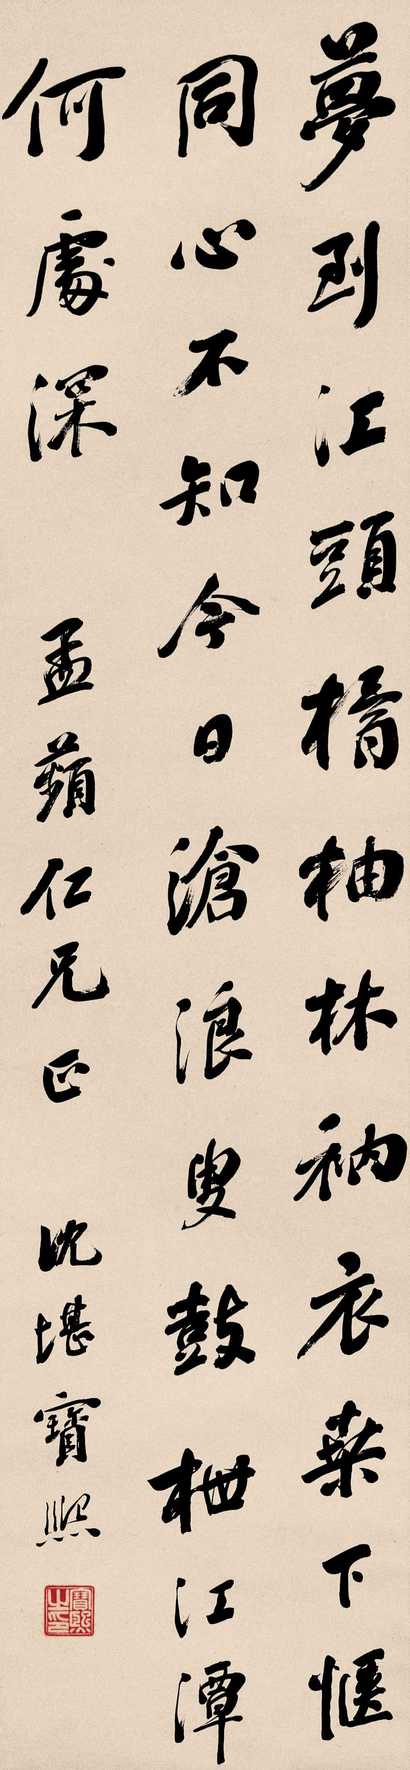 夢到江頭橘柚林衲衣桒下愜
同心不知今日滄浪叟鼓枻江潭
何處深　孟蘋仁兄正　沈堪寶熙
寶熙之印